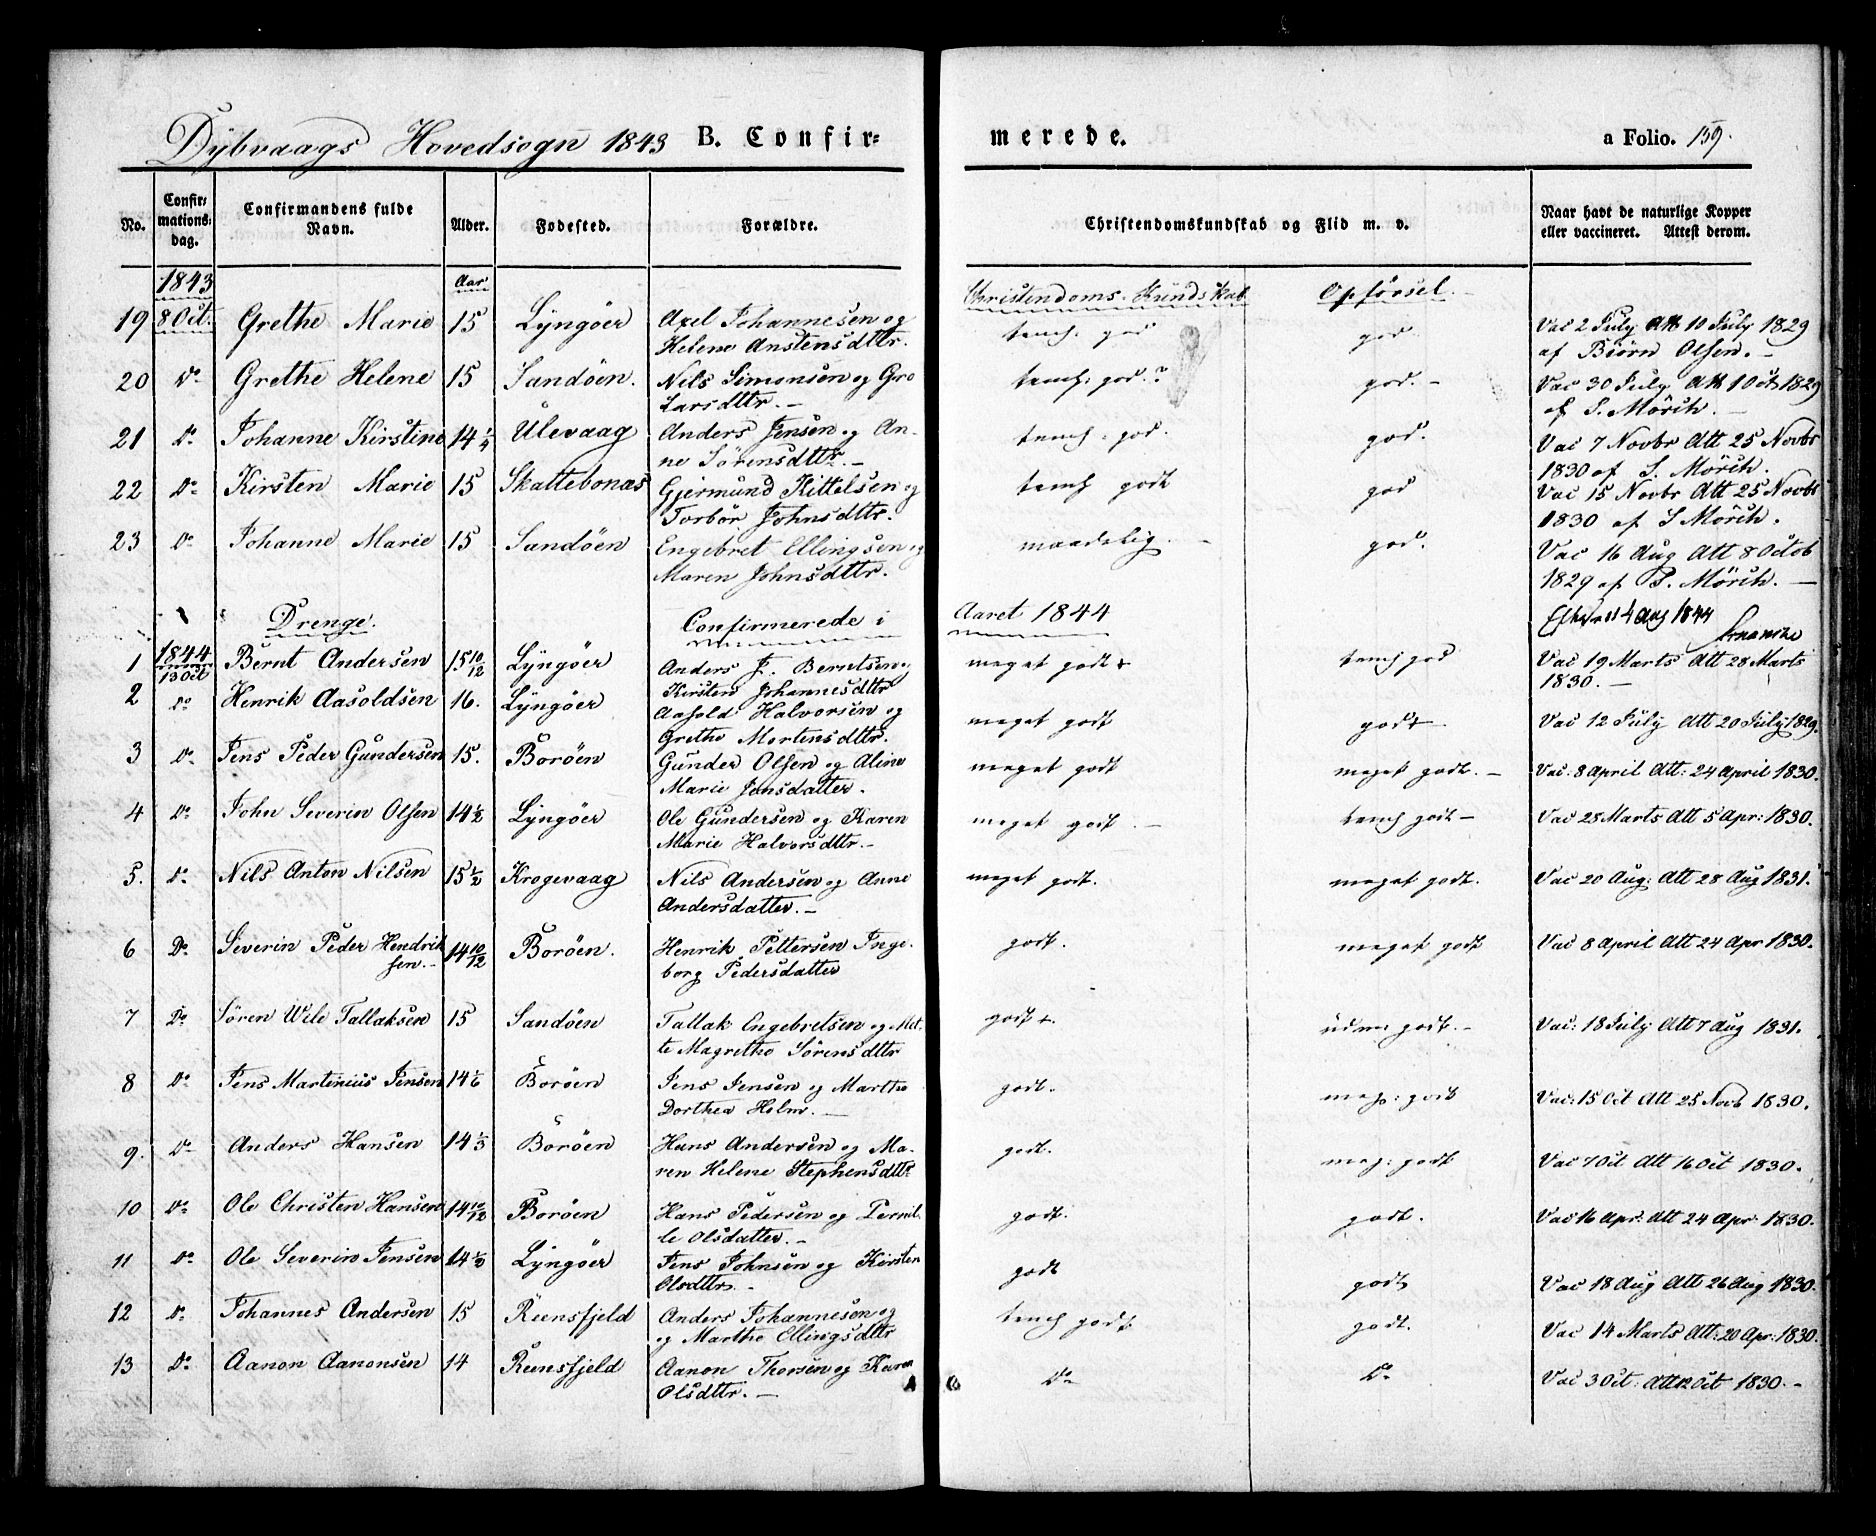 Dybvaags Hovedsogn 1843 B. Confirmerede. a Folio. 159.
No. Confirmationsdag. Confirmandens fulde Navn. Alder. Fødested. Forældre. Christendomskundskab og Flid m. v. Naar havt de naturlige Kopper eller vaccineret. Attest derom.
1843 Aar Christendoms-Kundskab Opførsel.
19 8 Oct. Grethe Marie 15 Lyngöer Axel Johannesen og temf: god god Vac 2 July Att 10 July 1829
Helene Anstensdttr. af Biörn Olsen. -
20 Do Grethe Helene 15 Sandöen. Nils Simonsen og Gro temf: god. god. - Vac 30 July Att 1 Oct 1829
Larsdttr. - af S. Mörch. -
21 Do Johanne Kirstine 14 1/4 Ulevaag Anders Jensen og An- temf: god. god. Vac 7 Novbr Att 25 Novbr
ne Sörensdttr. - 1830 af S. Mörch.
22 Do Kirsten Marie 15 Skattebonæs Gjermund Kittelsen og temf godt god Vac 15 Novbr Att 25 Novbr
Torbör Johnsdttr. 1830 af S Mörch.
23 Do Johanne Marie 15 Sandöen Engebret Ellingsen og maadelig. - god. Vac 16 Aug Att 8 Octob
Maren Johnsdttr. 1829 af S. Mörch. -
Drenge. Confirmerede i Aaret 1844 4 Aug 1844
1 1844 13 Oct Bernt Andersen 15 10/12 Lyngöer Anders J. Berntsen og meget godt + temf god Vac 19 Marts Att 28 Marts
Kirsten Johannesdttr 1830. -
2 Do Henrik Aasoldsen 16. Lyngöer Aasold Halvorsen og meget godt godt Vac 12 July Att 20 July 1829.
Grethe Mortensdttr.
3 Do Jens Peder Gundersen 15. Boröen Gunder Olsen og Aline meget godt meget godt. - Vac. 8 April Att: 24 April 1830.
Marie Jensdatter.
4 Do John Severin Olsen 14 1/2 Lyngöer Ole Gundersen og Karen meget godt. - temf godt - Vac 28 Marts Att 5 Apr: 1830.
Marie Halvorsdttr. -
5. Do Nils Anton Nilsen 15 1/2 Krogevaag Nils Andersen og Anne meget godt. meget godt. Vac 20 Aug: Att 28 Aug 1831.
Andersdatter. -
6 Do Severin Peder Hendrik- 14 10/12 Boröen. Henrik Pettersen Inge- godt. meget godt Vac 8 April Att 24 Apr 1830.
sen. - borg Pedersdatter
7 Do Sören Wile Tallaksen 15 Sandöen Tallak Engebretsen og Met- godt +. udm: godt. - Vac: 18 July Att 7 Aug 1831.
te Magrethe Sörensdttr
8 Do Jens Martinius Jensen 14 1/6 Boröen Jens Jensen og Marthe godt. meg: godt Vac: 15 Oct Att 25 Novb 1830.
Dorthea Holm. -
9. Do Anders Hansen 14 1/3 Boröen Hans Andersen og Ma- godt. meg: godt Vac 7 Oct Att 16 Oct 1830.
ren Helene Stephensdttr
10 Do Ole Christen Hansen 14 10/12 Boröen Hans Pedersen og Pernil- godt. godt. Vac 16 Apr: Att 24 Apr: 1830.
le Olsdatter. -
11 Do Ole Severin Jensen 14 1/2 Lyngöer Jens Johnsen og Kirsten godt godt Vac 18 Aug Att 26 Aug 1830.
Olsdttr. -
12 Do Johannes Andersen 15 Reensfjeld Anders Johannesen og temf godt. godt. Vac 14 Marts Att: 20 Apr: 1830.
og Marthe Ellingsdttr
13 Do Aanon Aanonsen 14 Reensfjeld Aanon Thorsen og Karen Do Do Vac 3 Oct: Att 12 Oct 1830. -
Olsdttr. -